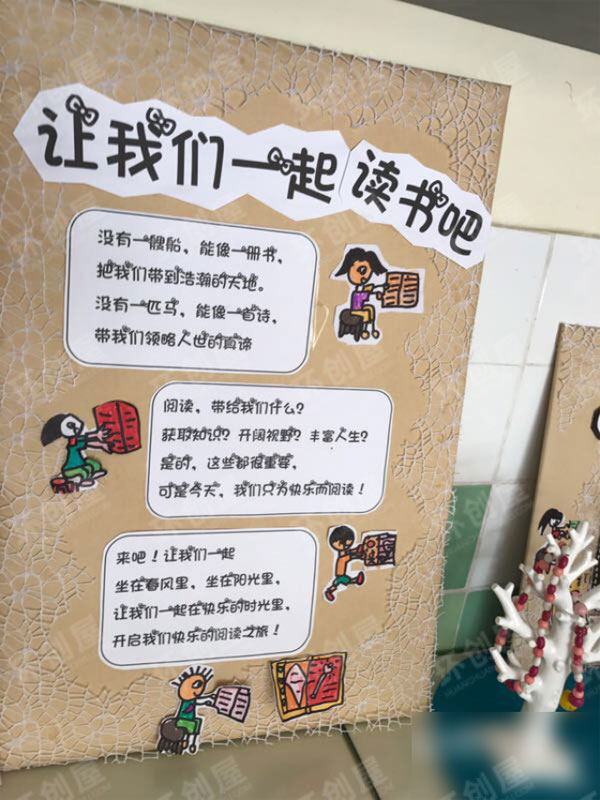 让我们一起读书吧
没有一艘船，能像一册书，
把我们带到浩瀚的天地。
没有一匹马，能像一首诗，
带我们领略人世的真谛
阅读，带给我们什么？
获取知识？开阔视野？丰富人生？
是的，这些都很重要，
可是今天，我们只为快乐而阅读！
来吧！让我们一起
坐在春风里，坐在阳光里，
让我们一起在快乐的时光里，
开启我们快乐的阅读之旅！